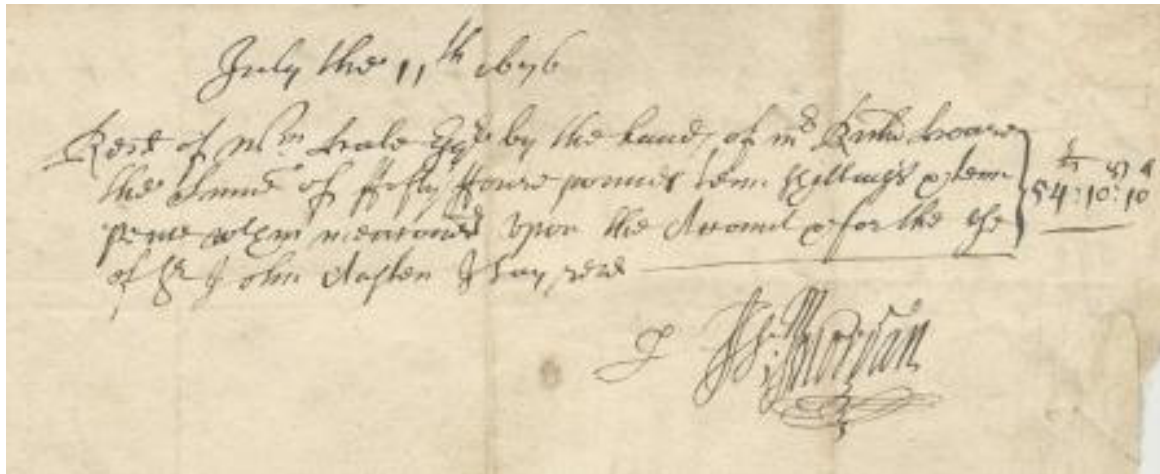 July the 11th 1676
Recd of Wm Hale Esqr by the hands of mr Richd Hoare
the Summe of fifty ffoure pounds tenn shillings & tenn
pence mentioned upon the Accompt & for the use
of Sr John Austen I say recd
54:10:10
Morgan